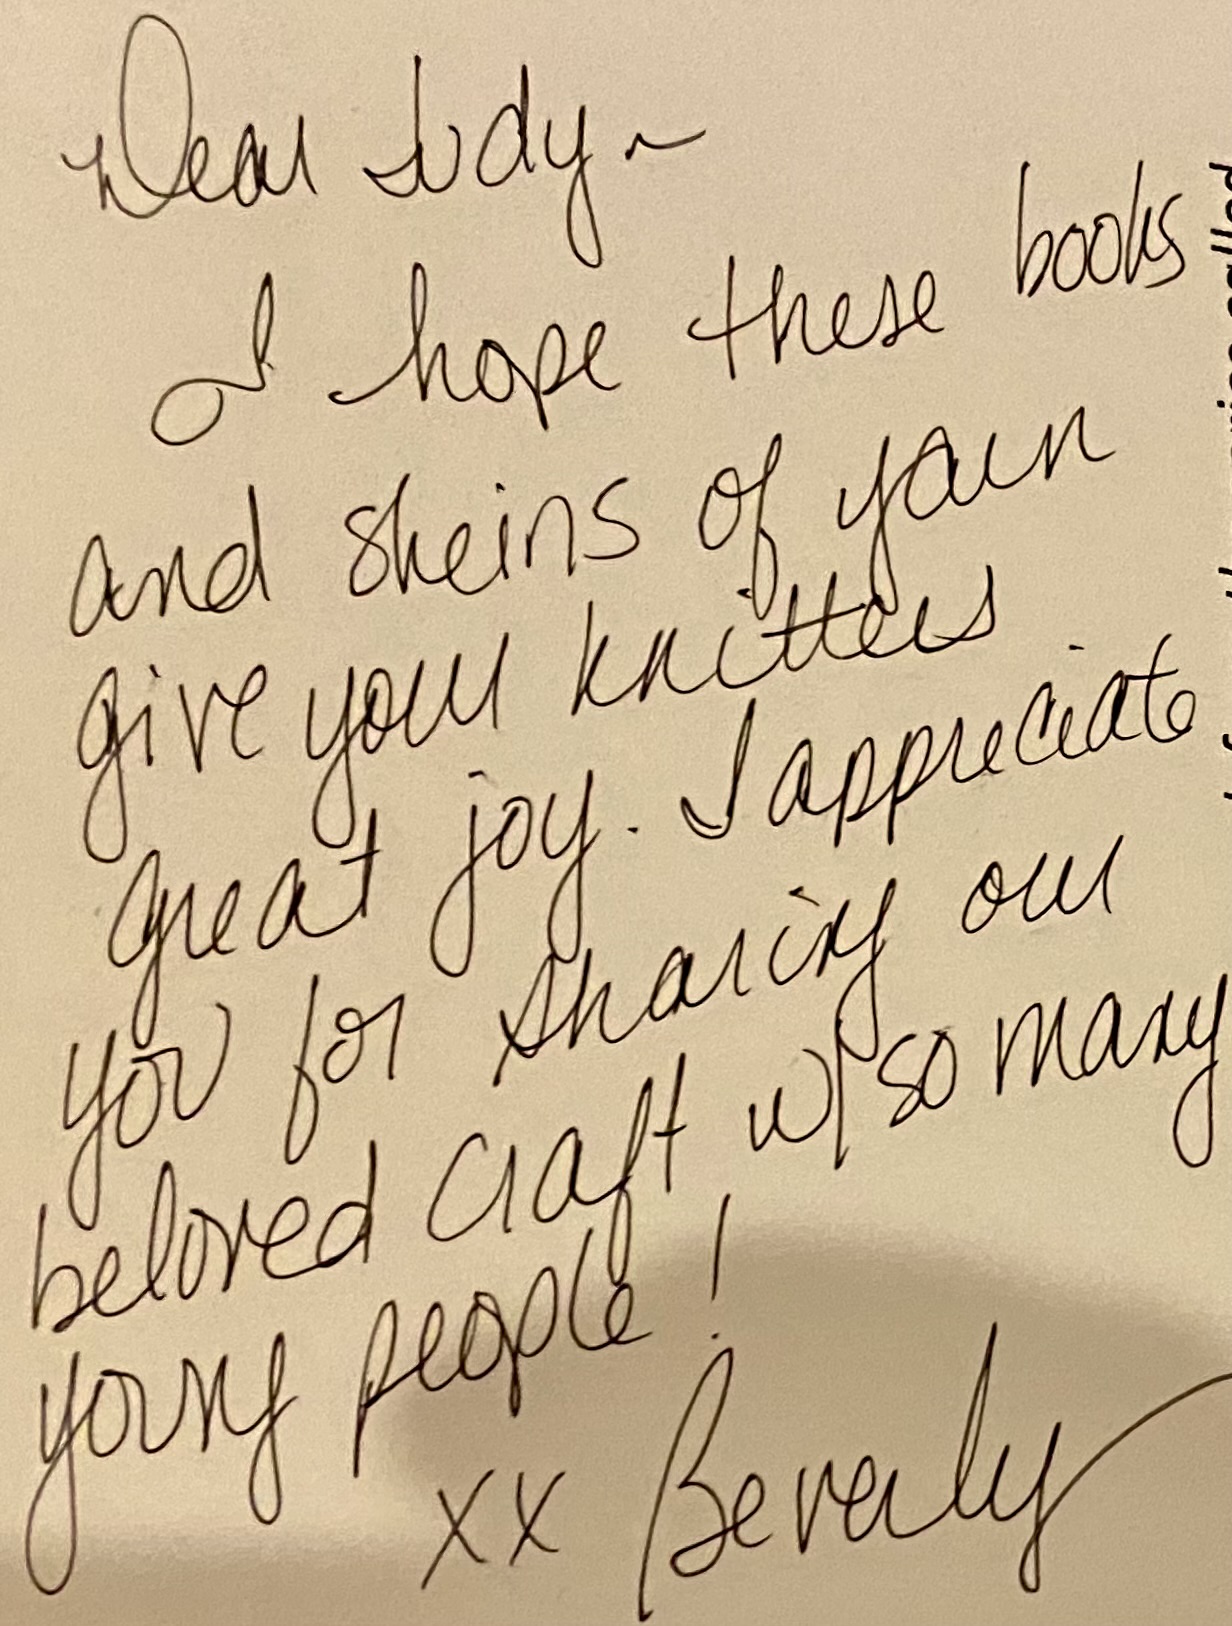 Dear Judy~
I hope these books
and skeins of yarn
give your knitters
great joy. I appreciate
you for sharing our
beloved craft w/ so many
young people!
xx Beverly